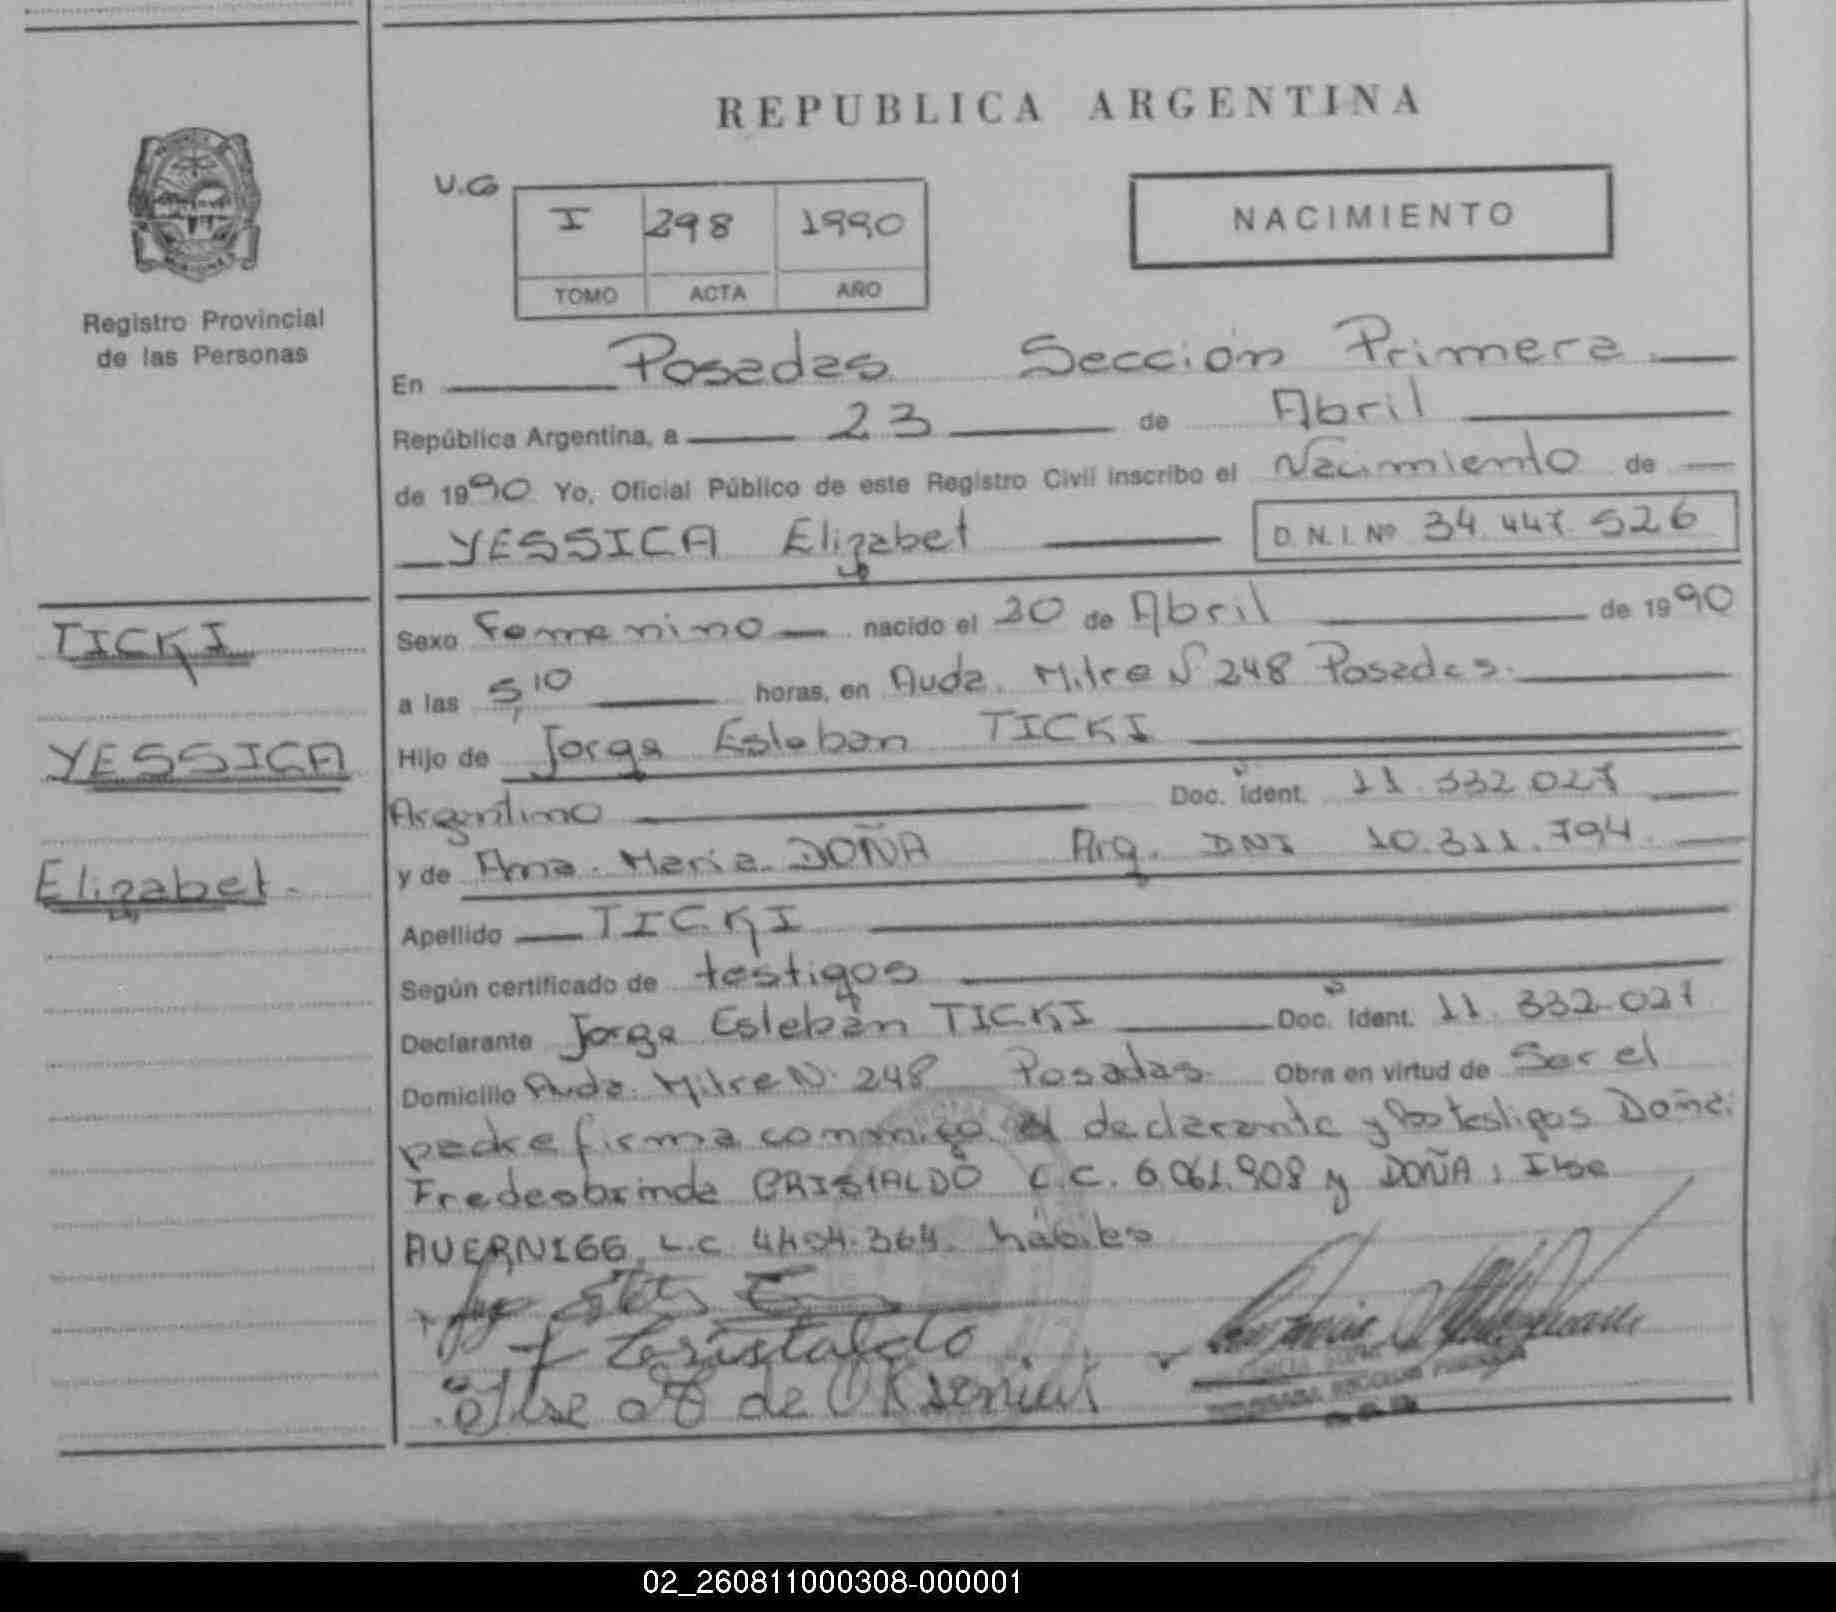 REPUBLICA ARGENTINA
V.G
I 298 1990
TOMO ACTA AÑO
NACIMIENTO
Registro Provincial
de las Personas
En Posadas Sección Primera
República Argentina, a 23 de Abril
de 1990 Yo, Oficial Público de este Registro Civil inscribo el Nacimiento de
YESSICA Elizabet D.N.I. Nº 34.447.526
TICKI
YESSICA
Elizabet.
Sexo Femenino nacido el 20 de Abril de 1990
a las 5,10 horas, en Avda. Mitre N 248 Posadas.
Hijo de Jorge Esteban TICKI
Argentino Doc. Ident. 11.332.027
y de Ana María DOÑA Arg. DNI 10.311.794
Apellido TICKI
Según certificado de testigos
Declarante Jorge Esteban TICKI Doc. Ident. 11.332.027
Domicilio Avda. Mitre N. 248 Posadas. Obra en virtud de Ser el
padre firma conmigo el declarante y los testigos Doña:
CRISTALDO L.C. 6.061.908 y DOÑA: Ilse
L.C. 364 hábiles
Cristaldo
Ilse de
02_260811000308-000001